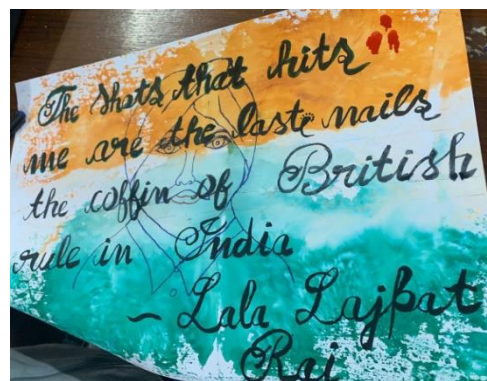 The shots that hits
me are the last nails
the coffin of British
rule in India
- Lala Lajpat
Rai